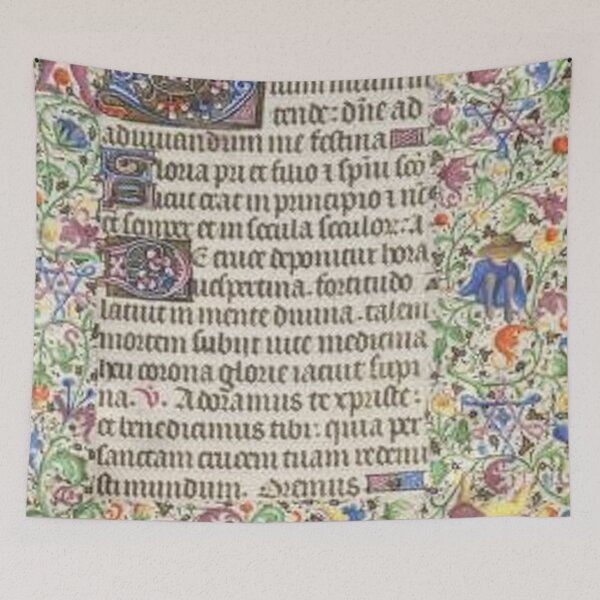 rium meum in
tende: dñe ad
adiuuandum me festina
Gloria pri et filio ⁊ spiũ scõ
Sicut erat in principio ⁊ nc̃
et semper et in secula seculor: A
De cruce deponitur hora
uespertina. fortitudo
latuit in mente diuina. talem
mortem subiit uite medicina
heu corona glorie iacuit supi
na. V. Adoramus te xpriste:
et benedicimus tibi: quia per
sanctam crucem tuam redemi
sti mundum. Oremus